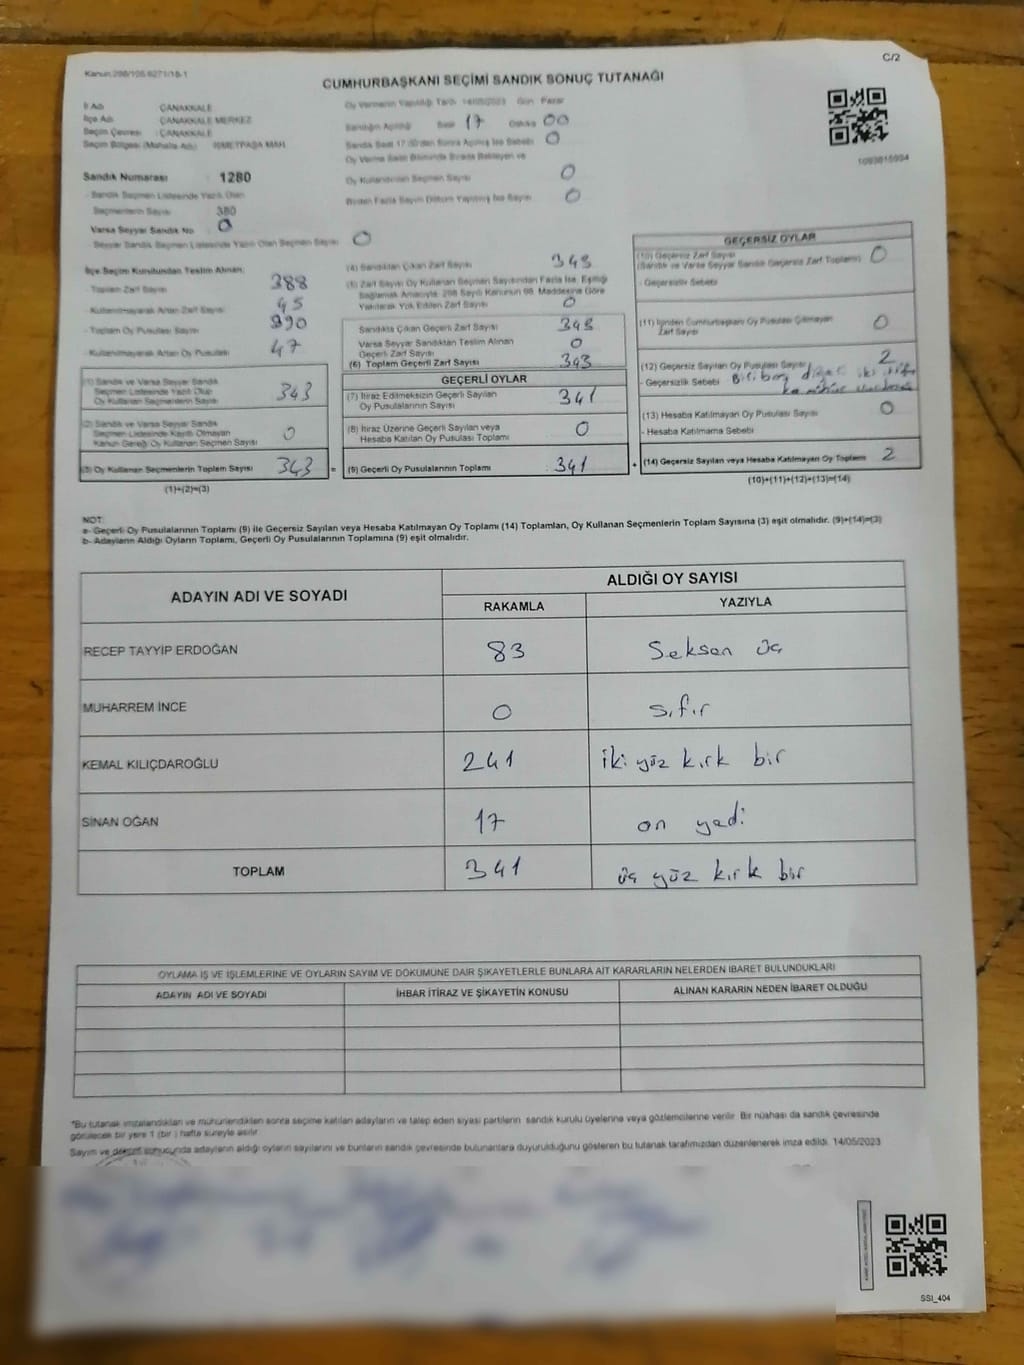 C/2
Kanun:298/105,6271/18-1
CUMHURBAŞKANI SEÇİMİ SANDIK SONUÇ TUTANAĞI
İl Adı ÇANAKKALE
İlçe Adı ÇANAKKALE MERKEZ
Seçim Çevresi : ÇANAKKALE
Seçim Bölgesi (Mahalle Adı) İSMETPAŞA MAH.
Oy Vermenin Yapıldığı Tarih 14/05/2023 Gün Pazar
Sandığın Açıldığı Saat 17 Dakika 00
Sandık Saat 17:00'den Sonra Açılmış İse Sebebi 0
Oy Verme Saati Bitiminde Sırada Bekleyen ve
Oy Kullandırılan Seçmen Sayısı 0
Birden Fazla Sayım Döküm Yapılmış İse Sayısı 0
Sandık Numarası 1280
- Sandık Seçmen Listesinde Yazılı Olan
Seçmenlerin Sayısı 380
Varsa Seyyar Sandık No 0
- Seyyar Sandık Seçmen Listesinde Yazılı Olan Seçmen Sayısı 0
İlçe Seçim Kurulundan Teslim Alınan;
- Toplam Zarf Sayısı 388
- Kullanılmayarak Artan Zarf Sayısı 45
- Toplam Oy Pusulası Sayısı 390
- Kullanılmayarak Artan Oy Pusulası 47
(1) Sandık ve Varsa Seyyar Sandık
Seçmen Listesinde Yazılı Olup
Oy Kullanan Seçmenlerin Sayısı 343
(2) Sandık ve Varsa Seyyar Sandık
Seçmen Listesinde Kayıtlı Olmayan
Kanun Gereği Oy Kullanan Seçmen Sayısı 0
(3) Oy Kullanan Seçmenlerin Toplam Sayısı 343 =
(1)+(2)=(3)
(4) Sandıktan Çıkan Zarf Sayısı 343
(5) Zarf Sayısı Oy Kullanan Seçmen Sayısından Fazla İse, Eşitliği
Sağlamak Amacıyla, 298 Sayılı Kanunun 98. Maddesine Göre
Yakılarak Yok Edilen Zarf Sayısı 0
Sandıkta Çıkan Geçerli Zarf Sayısı 343
Varsa Seyyar Sandıktan Teslim Alınan
Geçerli Zarf Sayısı 0
(6) Toplam Geçerli Zarf Sayısı 343
GEÇERLİ OYLAR
(7) İtiraz Edilmeksizin Geçerli Sayılan
Oy Pusulalarının Sayısı 341
(8) İtiraz Üzerine Geçerli Sayılan veya
Hesaba Katılan Oy Pusulası Toplamı 0
(9) Geçerli Oy Pusulalarının Toplamı : 341 +
GEÇERSİZ OYLAR
(10) Geçersiz Zarf Sayısı
(Sandık ve Varsa Seyyar Sandık Geçersiz Zarf Toplamı) 0
- Geçersizlik Sebebi
(11) İçinden Cumhurbaşkanı Oy Pusulası Çıkmayan
Zarf Sayısı 0
(12) Geçersiz Sayılan Oy Pusulası Sayısı 2
- Geçersizlik Sebebi
(13) Hesaba Katılmayan Oy Pusulası Sayısı 0
- Hesaba Katılmama Sebebi
(14) Geçersiz Sayılan veya Hesaba Katılmayan Oy Toplamı 2
(10)+(11)+(12)+(13)=(14)
NOT:
a- Geçerli Oy Pusulalarının Toplamı (9) ile Geçersiz Sayılan veya Hesaba Katılmayan Oy Toplamı (14) Toplamları, Oy Kullanan Seçmenlerin Toplam Sayısına (3) eşit olmalıdır. (9)+(14)=(3)
b- Adayların Aldığı Oyların Toplamı, Geçerli Oy Pusulalarının Toplamına (9) eşit olmalıdır.
ADAYIN ADI VE SOYADI ALDIĞI OY SAYISI
RAKAMLA YAZIYLA
RECEP TAYYİP ERDOĞAN 83 Seksen üç
MUHARREM İNCE 0 sıfır
KEMAL KILIÇDAROĞLU 241 iki yüz kırk bir
SİNAN OĞAN 17 on yedi
TOPLAM 341 üç yüz kırk bir
OYLAMA İŞ VE İŞLEMLERİNE VE OYLARIN SAYIM VE DÖKÜMÜNE DAİR ŞİKAYETLERLE BUNLARA AİT KARARLARIN NELERDEN İBARET BULUNDUKLARI
ADAYIN ADI VE SOYADI İHBAR İTİRAZ VE ŞİKAYETİN KONUSU ALINAN KARARIN NEDEN İBARET OLDUĞU
*Bu tutanak imzalandıktan ve mühürlendikten sonra seçime katılan adayların ve talep eden siyasi partilerin sandık kurulu üyelerine veya gözlemcilerine verilir. Bir nüshası da sandık çevresinde
görülecek bir yere 1 (bir ) hafta süreyle asılır.
Sayım ve döküm sonucunda adayların aldığı oyların sayılarını ve bunların sandık çevresinde bulunanlara duyurulduğunu gösteren bu tutanak tarafımızdan düzenlenerek imza edildi. 14/05/2023
SSI_404